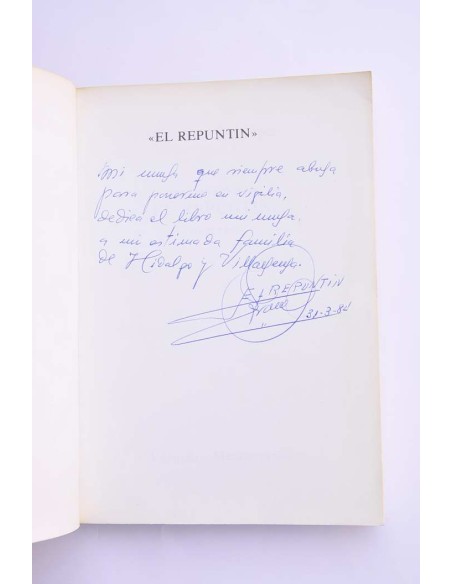 «EL REPUNTIN»
Mi musa que siempre abuja
para ponerme en vigilia,
dedica el libro mi musa,
a mi estimada familia
de Hidalgo y
EL REPUNTIN
31-3-84